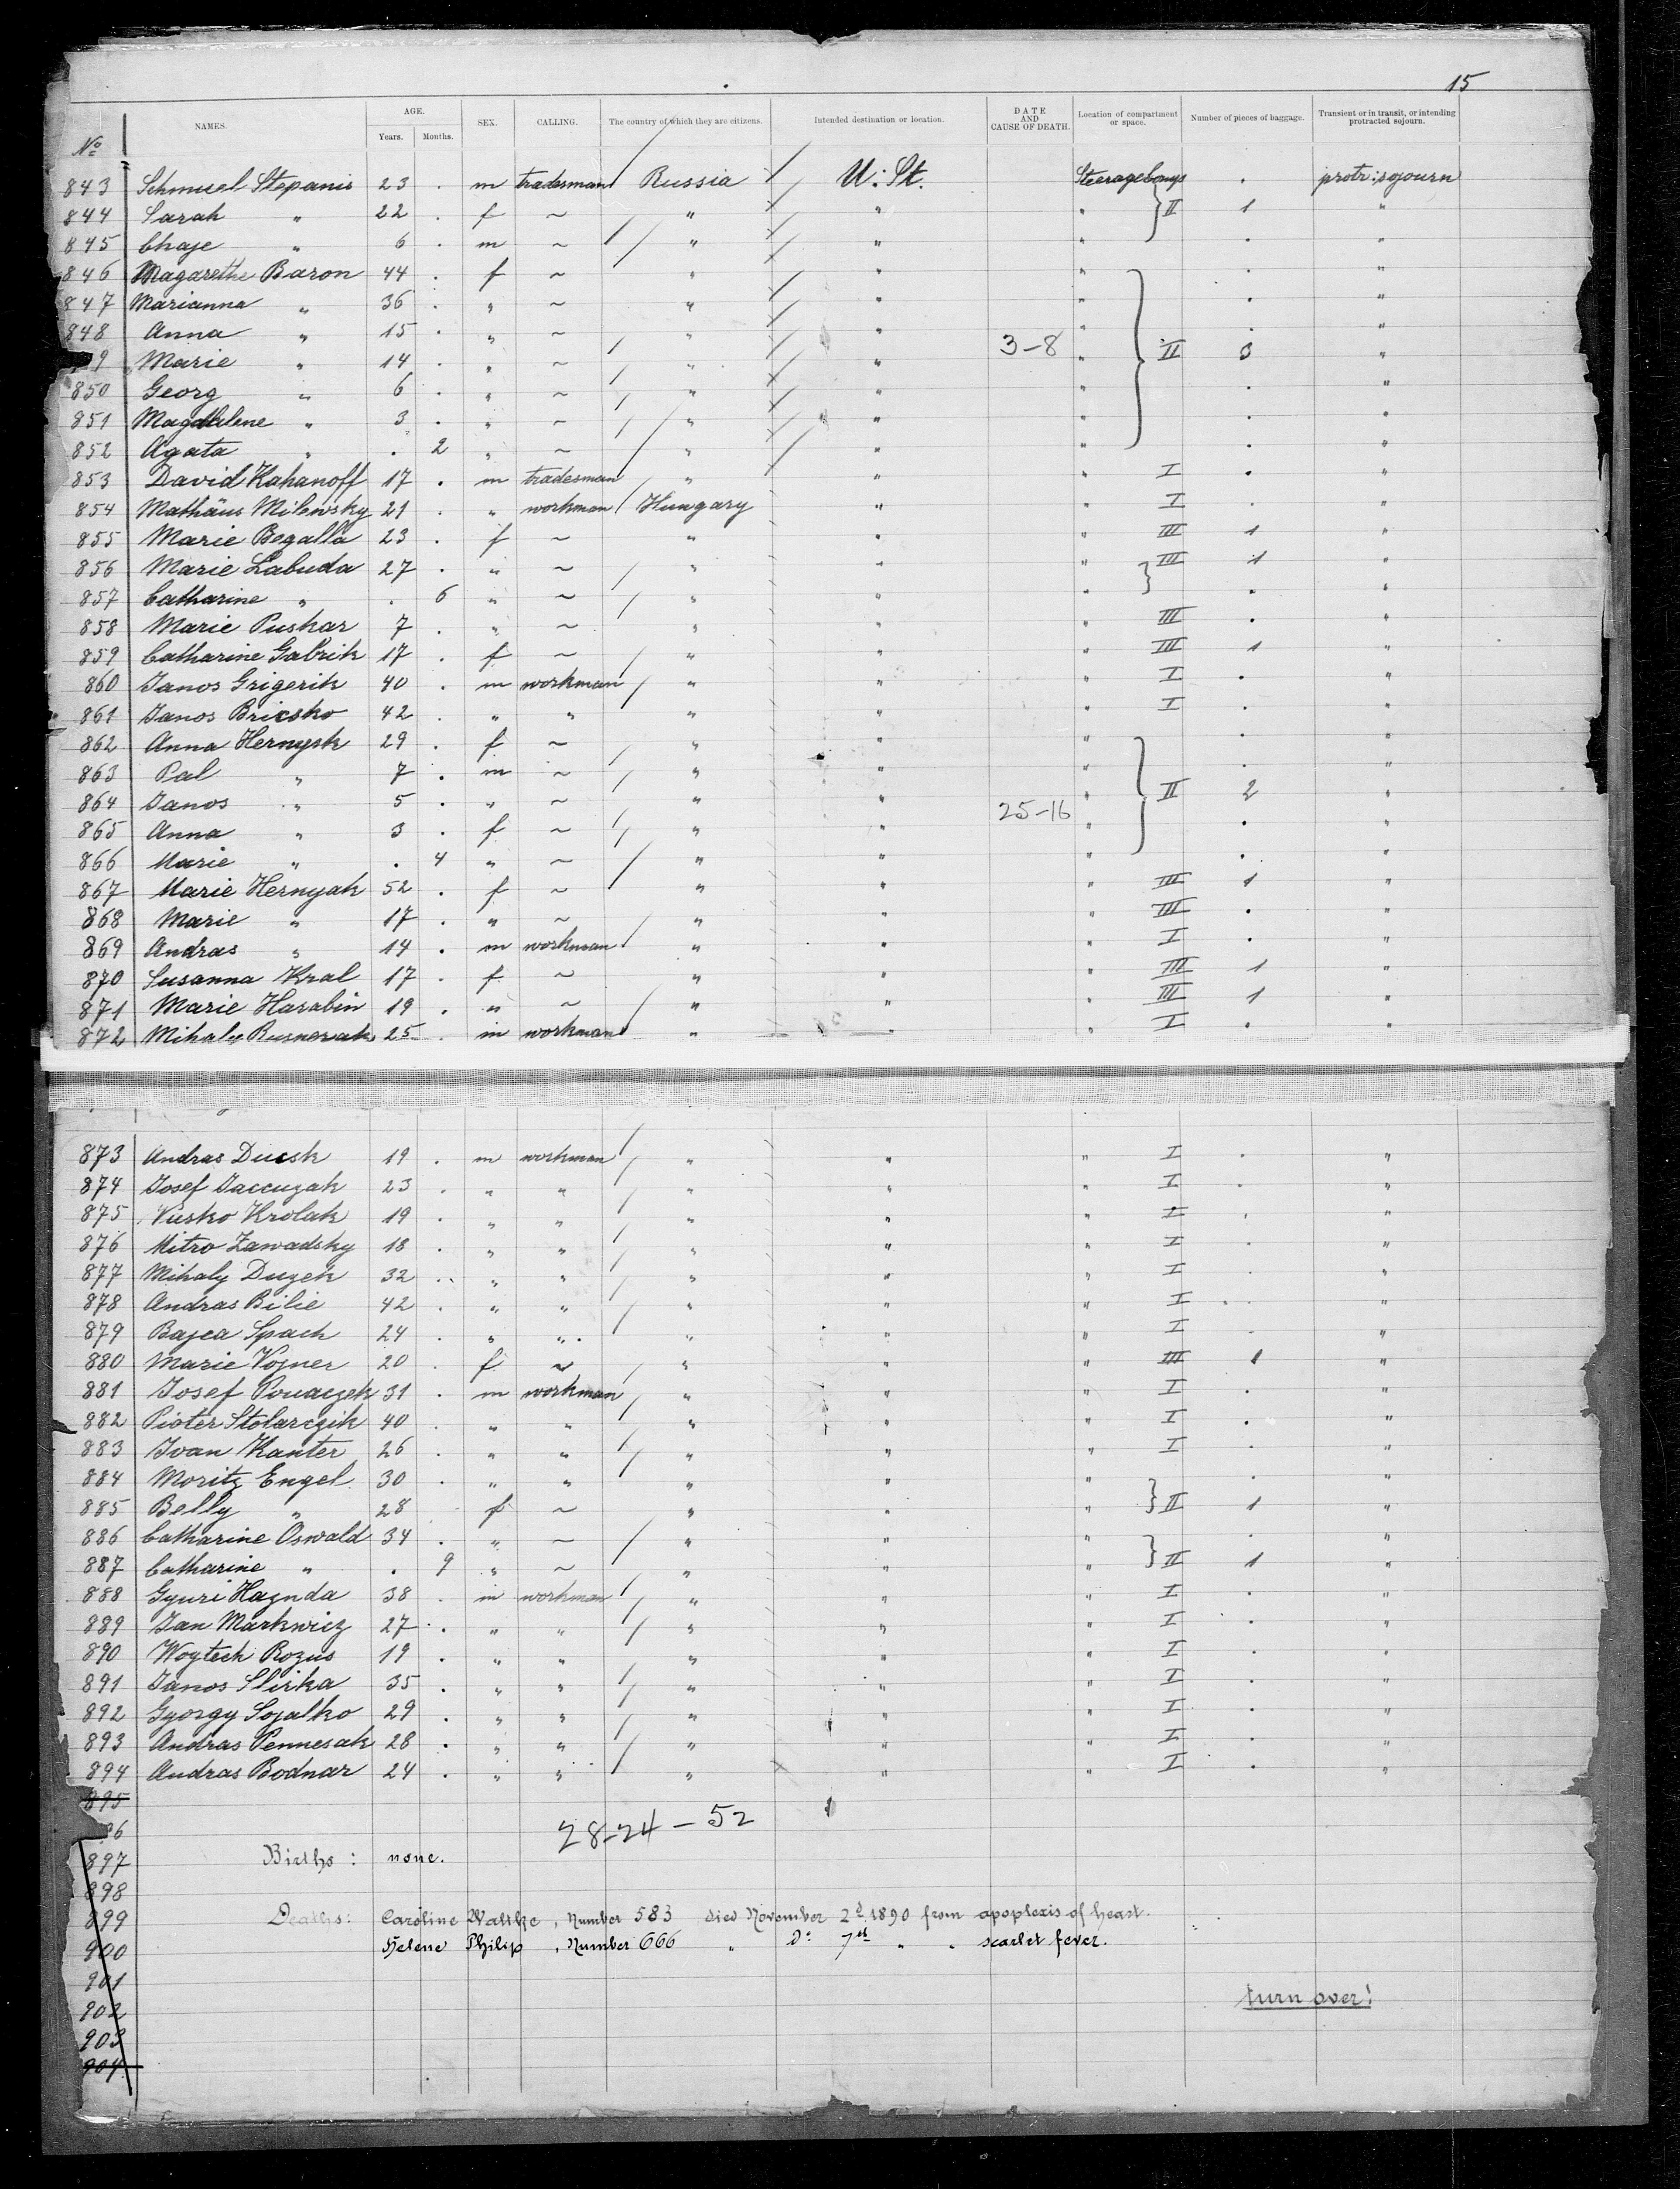 15
No NAMES. AGE. Years. Months. SEX. CALLING. The country of which they are citizens. Intended destination or location. DATE AND CAUSE OF DEATH. Location of compartment or space. Number of pieces of baggage. Transient or in transit, or intending protracted sojourn.
843 Schmuel Stepanis 23 . m tradesman Russia U. St. Steerage protr: sojourn
844 Sarah " 22 . f ~ " " " II 1 "
845 Chaje " 6 . m ~ " " " . "
846 Magarethe Baron 44 . f ~ " " " . "
847 Marianna " 36 . " ~ " " " . "
848 Anna " 15 . " ~ " " " . "
9 Marie " 14 . " ~ " " 3-8 " II 3 "
850 Georg " 6 . " ~ " " " . "
851 Magdalene " 3 . " ~ " " " . "
852 Agata " . 2 " ~ " " " . "
853 David Kahanoff 17 . m tradesman " " " I . "
854 Mathäus Milewsky 21 . " workman Hungary " " I . "
855 Marie Begalla 23 . f ~ " " " III 1 "
856 Marie Labuda 27 . " ~ " " " III 1 "
857 Catharine " . 6 " ~ " " " . "
858 Marie Puskar 7 . " ~ " " " III . "
859 Catharine Gabrik 17 . f ~ " " " III 1 "
860 Janos Grigerik 40 . m workman " " " I . "
861 Janos Bricsko 42 . " " " " " I . "
862 Anna Hernysk 29 . f ~ " " " . "
863 Pal " 7 . m ~ " " " . "
864 Janos " 5 . " ~ " " 25-16 " II 2 "
865 Anna " 3 . f ~ " " " . "
866 Marie " . 4 " ~ " " " . "
867 Marie Hernyak 52 . f ~ " " " III 1 "
868 Marie " 17 . " ~ " " " III . "
869 Andras " 14 . m workman " " " I . "
870 Susanna Kral 17 . f ~ " " " III 1 "
871 Marie Harabin 19 . " ~ " " " III 1 "
872 Mihaly Rusnewak 25 . m workman " " " I . "
873 Andras Ducsk 19 . m workman " " " I . "
874 Josef Jaccuzak 23 . " " " " " I . "
875 Vusko Krolak 19 . " " " " " I . "
876 Mitro Zawadsky 18 . " " " " " I . "
877 Mihaly Duzek 32 . " " " " " I . "
878 Andras Bilie 42 . " " " " " I . "
879 Bajea Spach 24 . " " " " " I . "
880 Marie Vojner 20 . f ~ " " " III 1 "
881 Josef Pouaczek 31 . m workman " " " I . "
882 Pioter Stolarczik 40 . " " " " " I . "
883 Ivan Kanter 26 . " " " " " I . "
884 Moritz Engel 30 . " " " " " . "
885 Belly " 28 f ~ " " " II 1 "
886 Catharine Oswald 34 . " ~ " " " . "
887 Catharine " . 9 " ~ " " " II 1 "
888 Gyuri Haznda 38 . m workman " " " I . "
889 Jan Markwicz 27 . " " " " " I . "
890 Woytech Rozus 19 . " " " " " I . "
891 Janos Slirka 35 . " " " " " I . "
892 Gyorgy Sojalko 29 . " " " " " I . "
893 Andras Pennesak 28 . " " " " " I . "
894 Andras Bodnar 24 . " " " " " I . "
895
28-24-52
897 Births: none.
898
899 Deaths: Caroline Waltke, Number 583 died November 2d 1890 from apoplexis of heart.
900 Helene Philip, Number 666 " Do 7th " " scarlet fever.
901
turn over!
902
903
904